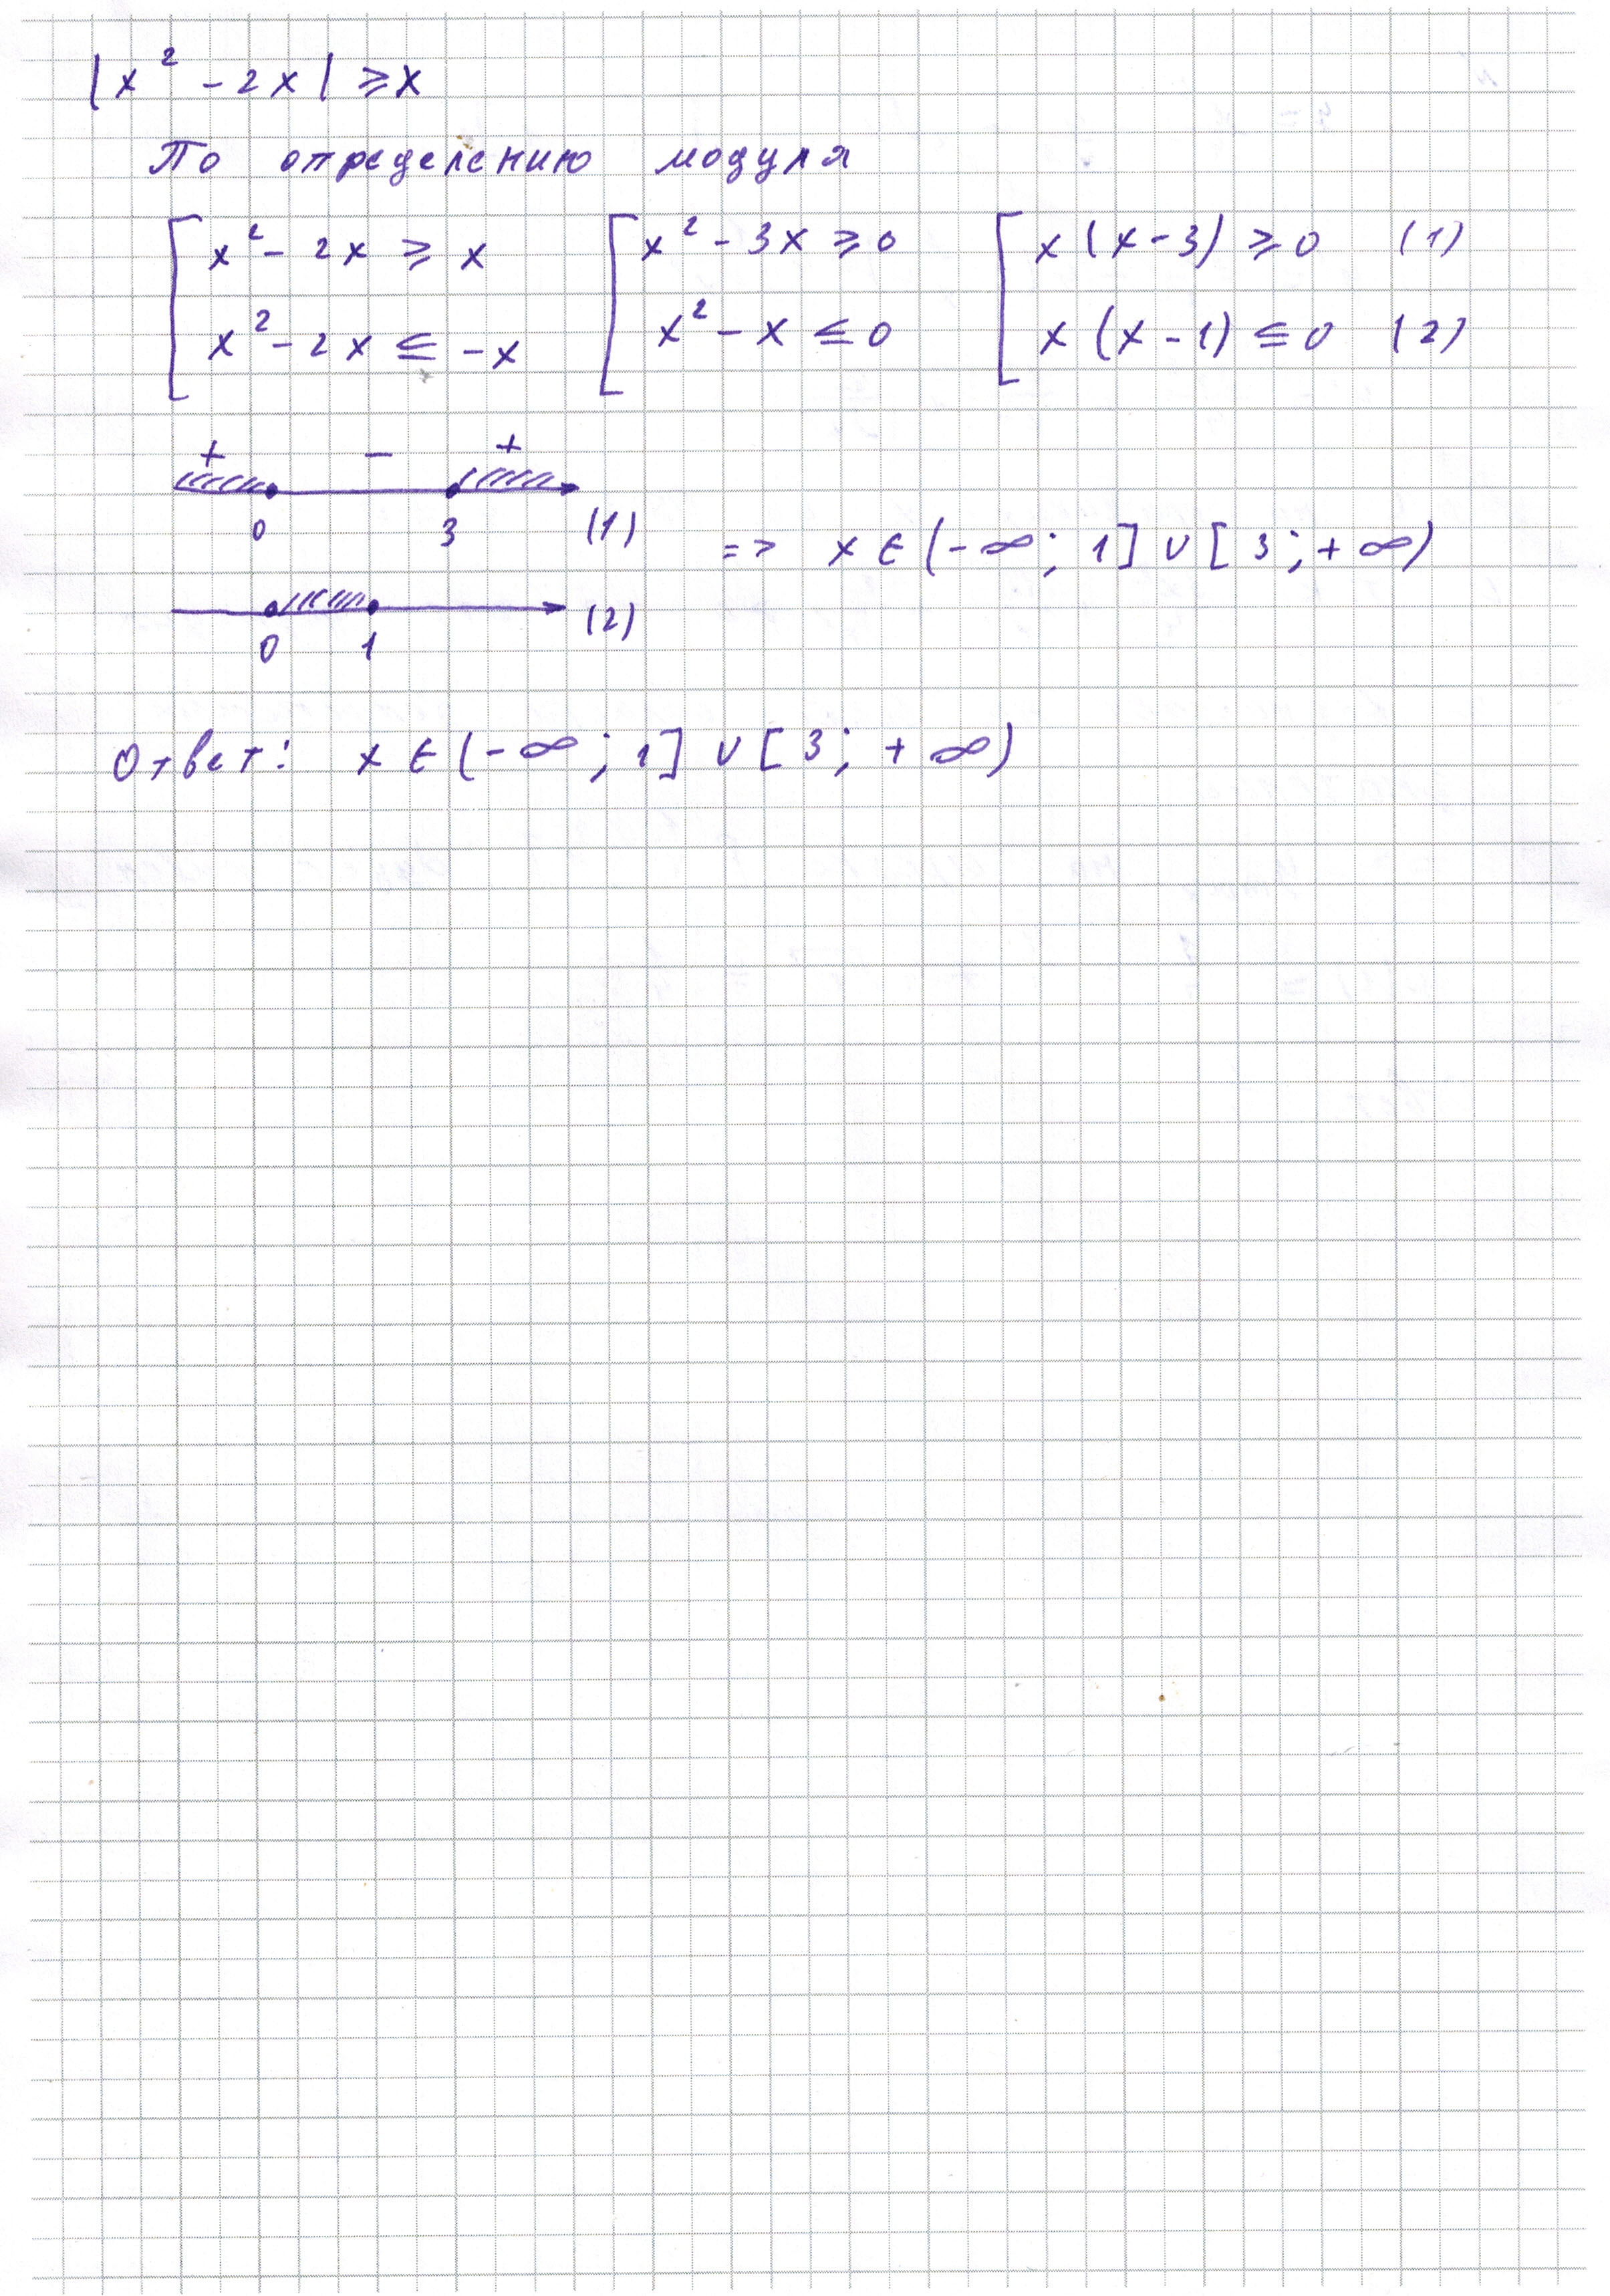 |x² - 2x| ≥ x
По определению модуля
[ x² - 2x ≥ x [ x² - 3x ≥ 0 [ x(x-3) ≥ 0 (1)
x² - 2x ≤ -x x² - x ≤ 0 x(x-1) ≤ 0 (2)
+ - +
0 3 (1)
=> x ∈ (-∞; 1] ∪ [3; +∞)
0 1 (2)
Ответ: x ∈ (-∞; 1] ∪ [3; +∞)